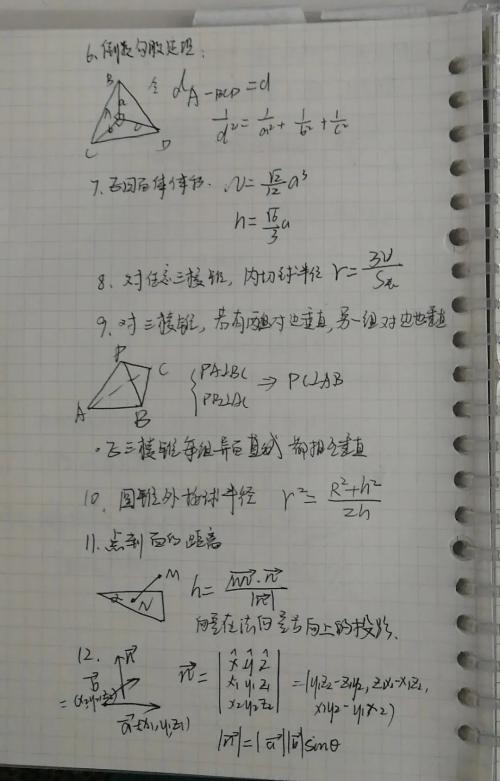 6、倒数勾股定理:
B
a
b
c
C
D
令 d_{A-BCD}=d
1/d²=1/a²+1/b²+1/c²
7、正四面体体积. V=√2/12 a³
h=√6/3 a
8、对任意三棱锥，内切球半径 r=3V/S表
9、对三棱锥，若有两组对边垂直，另一组对边也垂直
P
C
A
B
{PA⊥BC
PB⊥AC ⇒ PC⊥AB
·正三棱锥每组异面直线都相互垂直
10、圆锥外接球半径 r²=R²+h²/2h
11、点到面的距离
M
α
N
h=MN→·n→/|n→|
向量在法向量方向上的投影.
12.
n→
b→
=(x2,y2,z2)
a→=(x1,y1,z1)
n→=|x̂ ŷ ẑ
x1 y1 z1
x2 y2 z2| =(y1z2-z1y2, z1x2-x1z2,
x1y2-y1x2)
|n→|=|a→||b→|sinθ